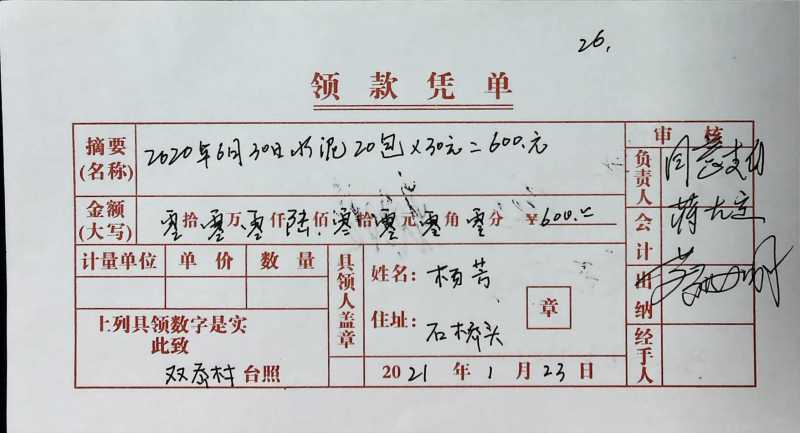 26.
领款凭单
摘要(名称) 2020年6月30日水泥20包×30元=600.元
金额(大写) 零拾零万零仟陆佰零拾零元零角零分 ¥600.00
计量单位 单价 数量
上列具领数字是实
此致
双泰村台照
具领人盖章
姓名: 杨芳
住址: 石桥头
章
2021年1月23日
审核
负责人 同意支付
蒋
会计
出纳
经手人